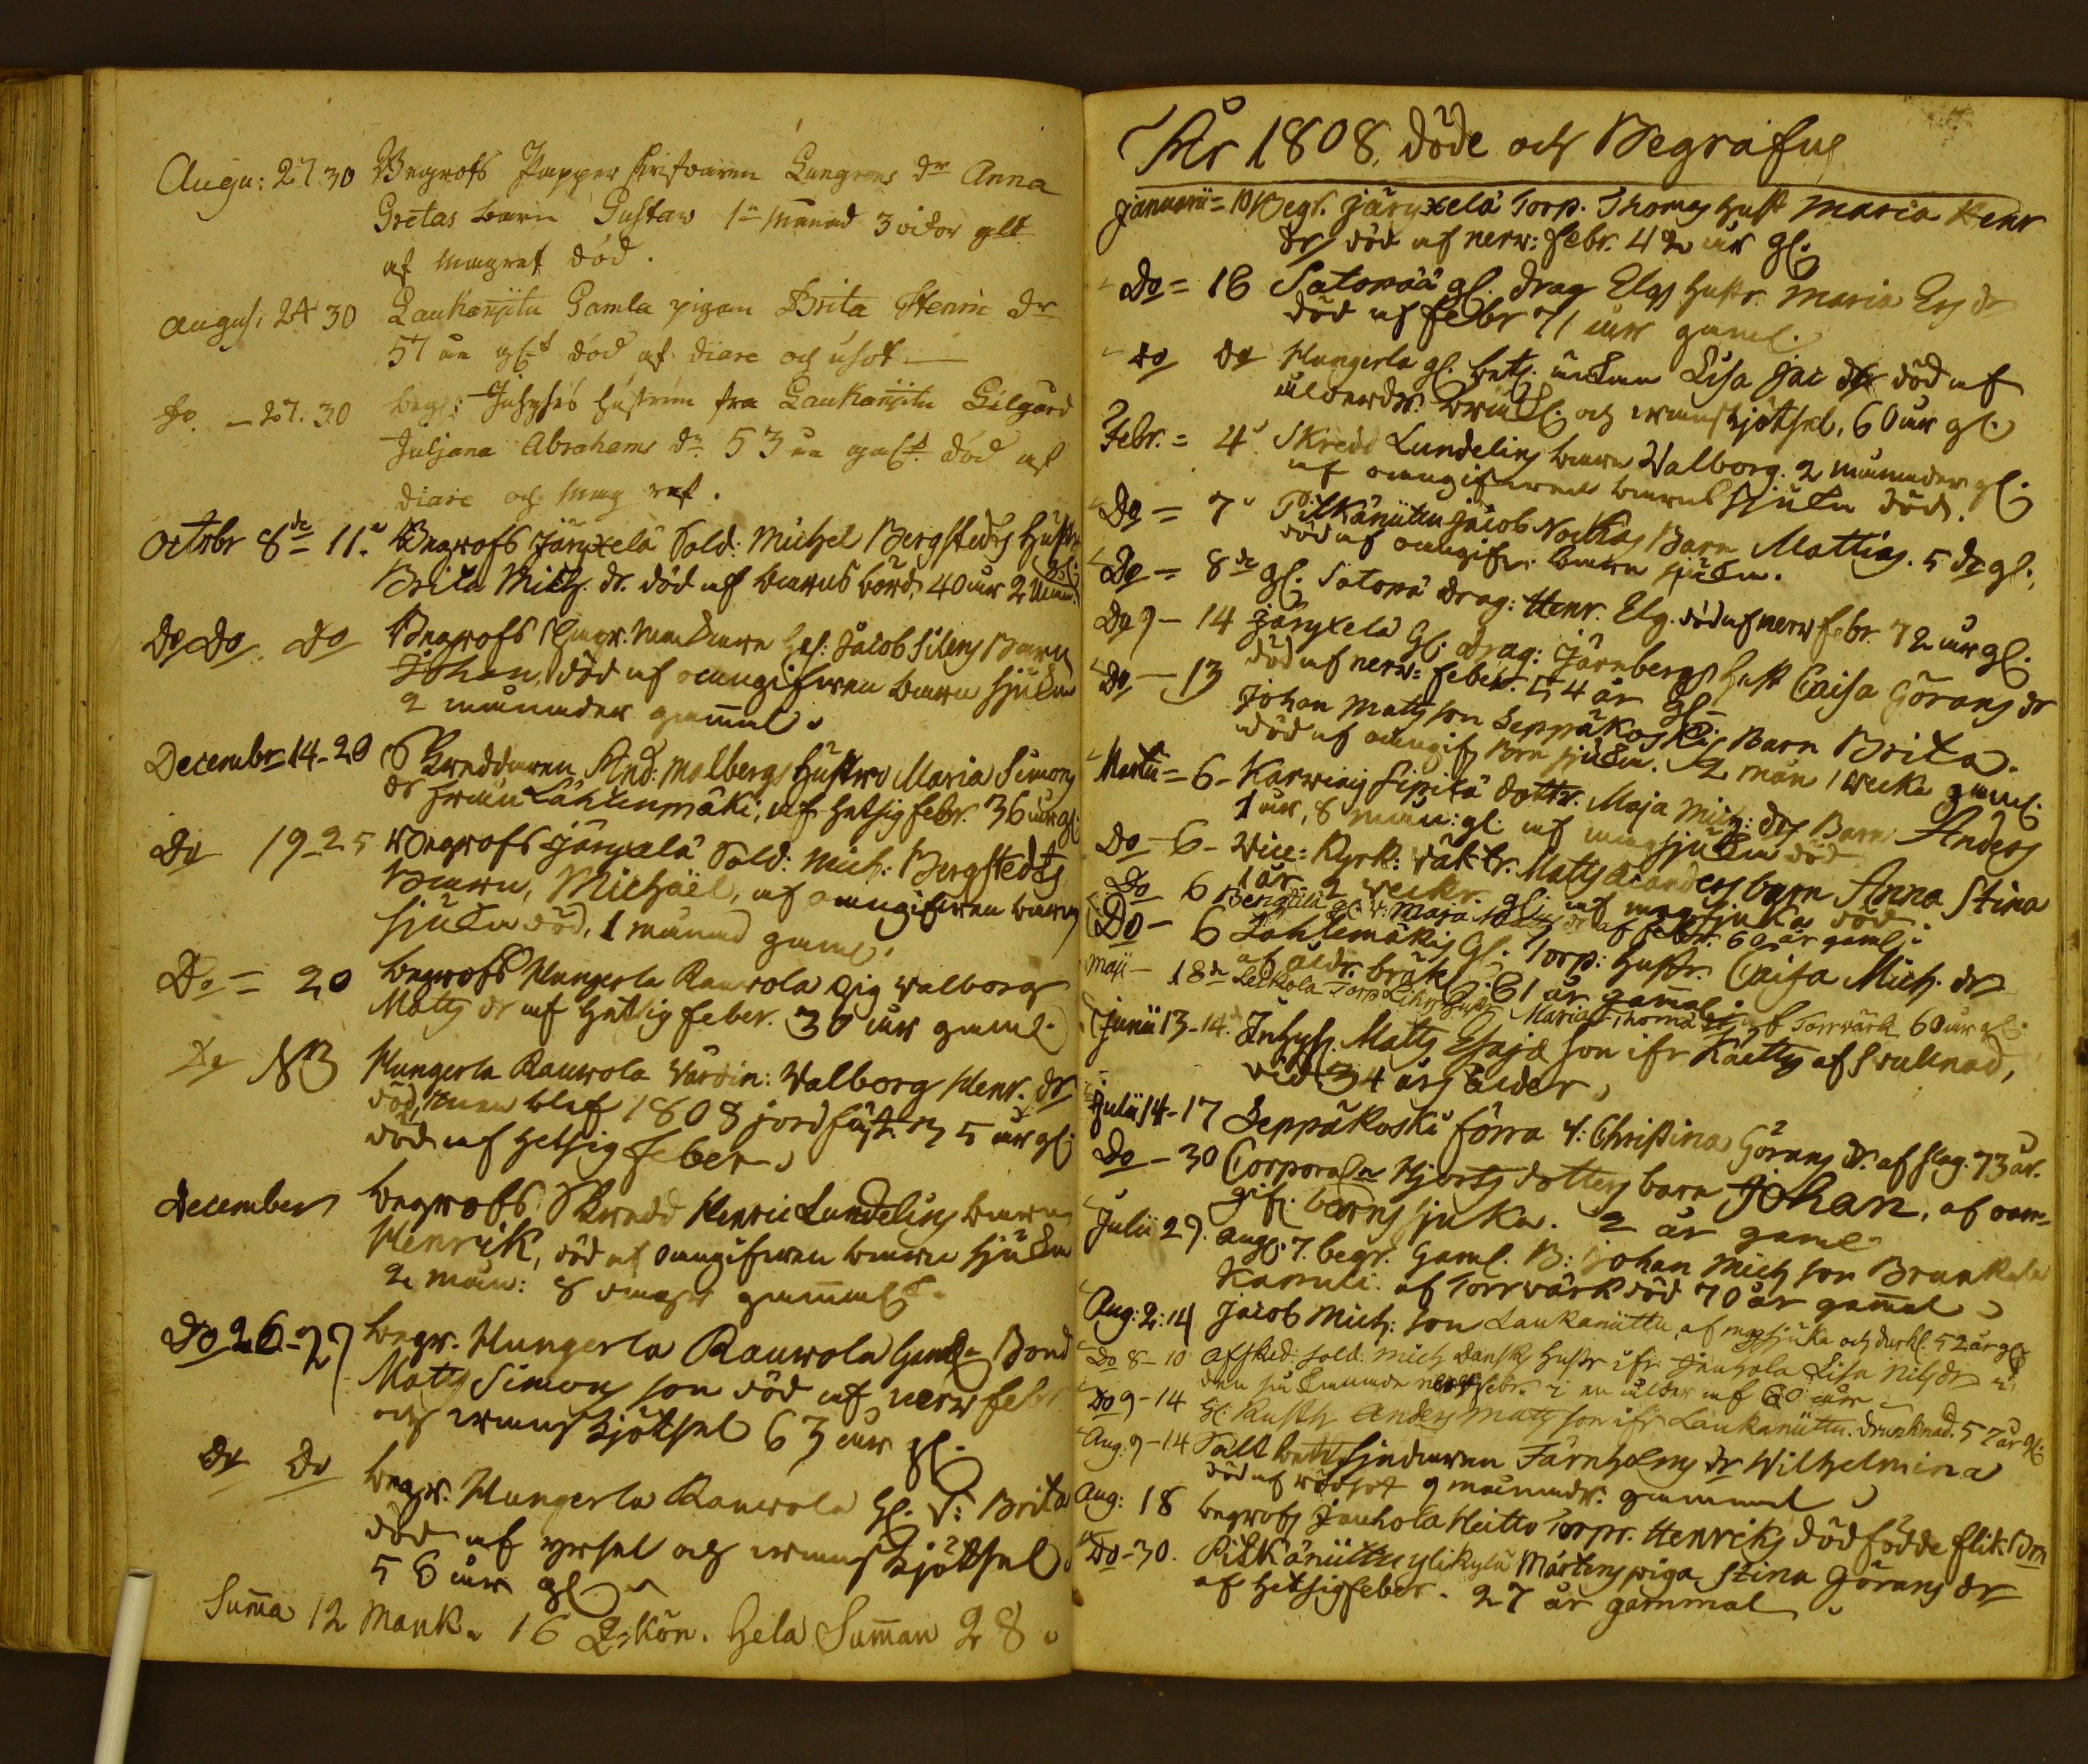 Augu: 27. 30 Begrofs Papper Lungrens dr Anna
Gretas barn Gustaw 1 månad 3 vikor glt
af magref död.
August 24 30 Laukanjitu Gamla pigan Brita Henric dr
57 åa glt död af diare och
Do 27. 30 begr: Inhyses hustrun fra Laukanjitu Gilgård
Juljana Abrahams dr 53 åa galt död af
diare och mag ref.
Octobr 8de 11. Begrofs Järyxelä Sold: Michel Bergstedts Hustr
Brita Mich. dr. död af barns börd, 40 år 2 mån.
Do Do Do Begrofs Jacob Silens Barn
Johan, död af oangifwen barn sjukdm
2 månader gammal.
Decembr 14-20 Skreddaren And: Malbergs Hustro Maria Simons
dr från Lähtenmäki, af hetsig febr. 36 år gl:
Do 19-25 Begrofs järyxelä Sold: Mich: Bergstedts
Barn, Michaël, af oangifwen barns
sjukdm död, 1 månad gaml.
Do = 20 begrofs Hungerla Rauvola pig Valborg
Matts dr af hetsig feber. 30 år gaml.
Do NB Hungerla Rauwola Värdin: Valborg Henr. dr
död, men blef 1808 jordfäst. 75 år gl:
död af Hetsig feber.
December begrofs Skredd Henric Lundelins barn
Henrik, död af oangifwen barn sjukdm
2 mån: 8 dagar gammalt.
Do 26-27 begr. Hungerla Rauwola Gamla Bond
Matts Simons son död af nerw febr
och wanskjötsel 63 år gl.
Do Do begr. Hungerla Rauwola gl. v: Brita
död af yrsel och wanskjötsel
56 år gl.
Summa 12 Mank. 16 Q:kön. Hela Summan 28.
År 1808, döde och Begrafne
Januarii = 10 Begr. järyxelä Torp. Thomas Hust Maria Henr
dr, död af nerv: febr. 42 år gl.
Do = 16 Satopää gl. drag Elgs Hustr. Maria Ers dr
död af febr 71 år gaml.
Do Do Hungerla gl. änkan Lisa Jac dr död af
ålderdr. bräckl. och wanskjötsel, 60 år gl.
Febr. = 4 Skredd Lundelins barn Valborg. 2 månader gl.
af oangifwen barns sjukdm död.
Do = 7 Pitkäniittu Jacob Nockas Barn Mattias. 5 Do gl:
död af oangifn barn sjukdm.
Do = 8de gl. Satopä drag: Henr. Elg. död af nerv febr. 72 år gl.
Do 9 - 14 järyxelä gl. drag: Järnbergs Hust Caisa Görans dr
död af nerv: feber. 54 år gl.
Do - 13 Johan Mats son Seppäkoskis Barn Brita.
död af oangif. barn sjukdm. 2 mån 1 wecka gaml.
Martii = 6 - Karwiais Sipilä dottr. Maja Mich: drs Barn Anders
1 år, 8 mån: gl. af magsjukdm död
Do - 6 - Vice: Kyrk: väktr. Matts barn Anna Stina
1 år 2 weckr. gl. af magsjuka död
Do 6 v: Maja dr af febr. 60 år gaml.
Do - 6 Lähtemäkis gl. Torp: Hustr. Caisa Mich. dr
af åldr. bräckl: 81 år gammal
Maji - 18de Leckola Torp Hustr Maria Thoma dr af Torrvärk 60 år gl.
Junii 13-14. Inhys. Matts Esaja son ifr Kaitty af Svullnad,
vid 34 års ålder,
Julii 14-17 Seppäkoski förra v: Christina Görans dr. af slag. 73 år.
Do - 30 Corporaln Hjorts dotters barn Johan, af oan-
gif. barns sjuka. 2 år gaml.
Julii 29. aug. 7. begr. Gaml. B: Johan Mich son Brunkala
af Torrvärk död 70 år gammal
Aug: 2: 14 Jacob Mich: son Laukaniittu, af magsjuka och durkl. 52 år gl
Do 8-10 Afsked: Sold: Mich Dansk Hustr ifr Jauhola Lisa Nils dr
i en ålder af 60 år
Do 9-14 gl. Anders Mats son ifr Laukaniittu. drunknad. 57 år gl.
Aug. 9-14 Salt sjudaren Färnholms dr Wilhelmina
död af rödsot 9 månadr. gammal
Aug: 18 begrofs Jauhola Heitto Torpr. Henriks dödfödde flik Brn
Do - 30. Pitkäniittu ylikylä Mårtens piga Stina Görans dr
af Hetsigfeber. 27 år gammal